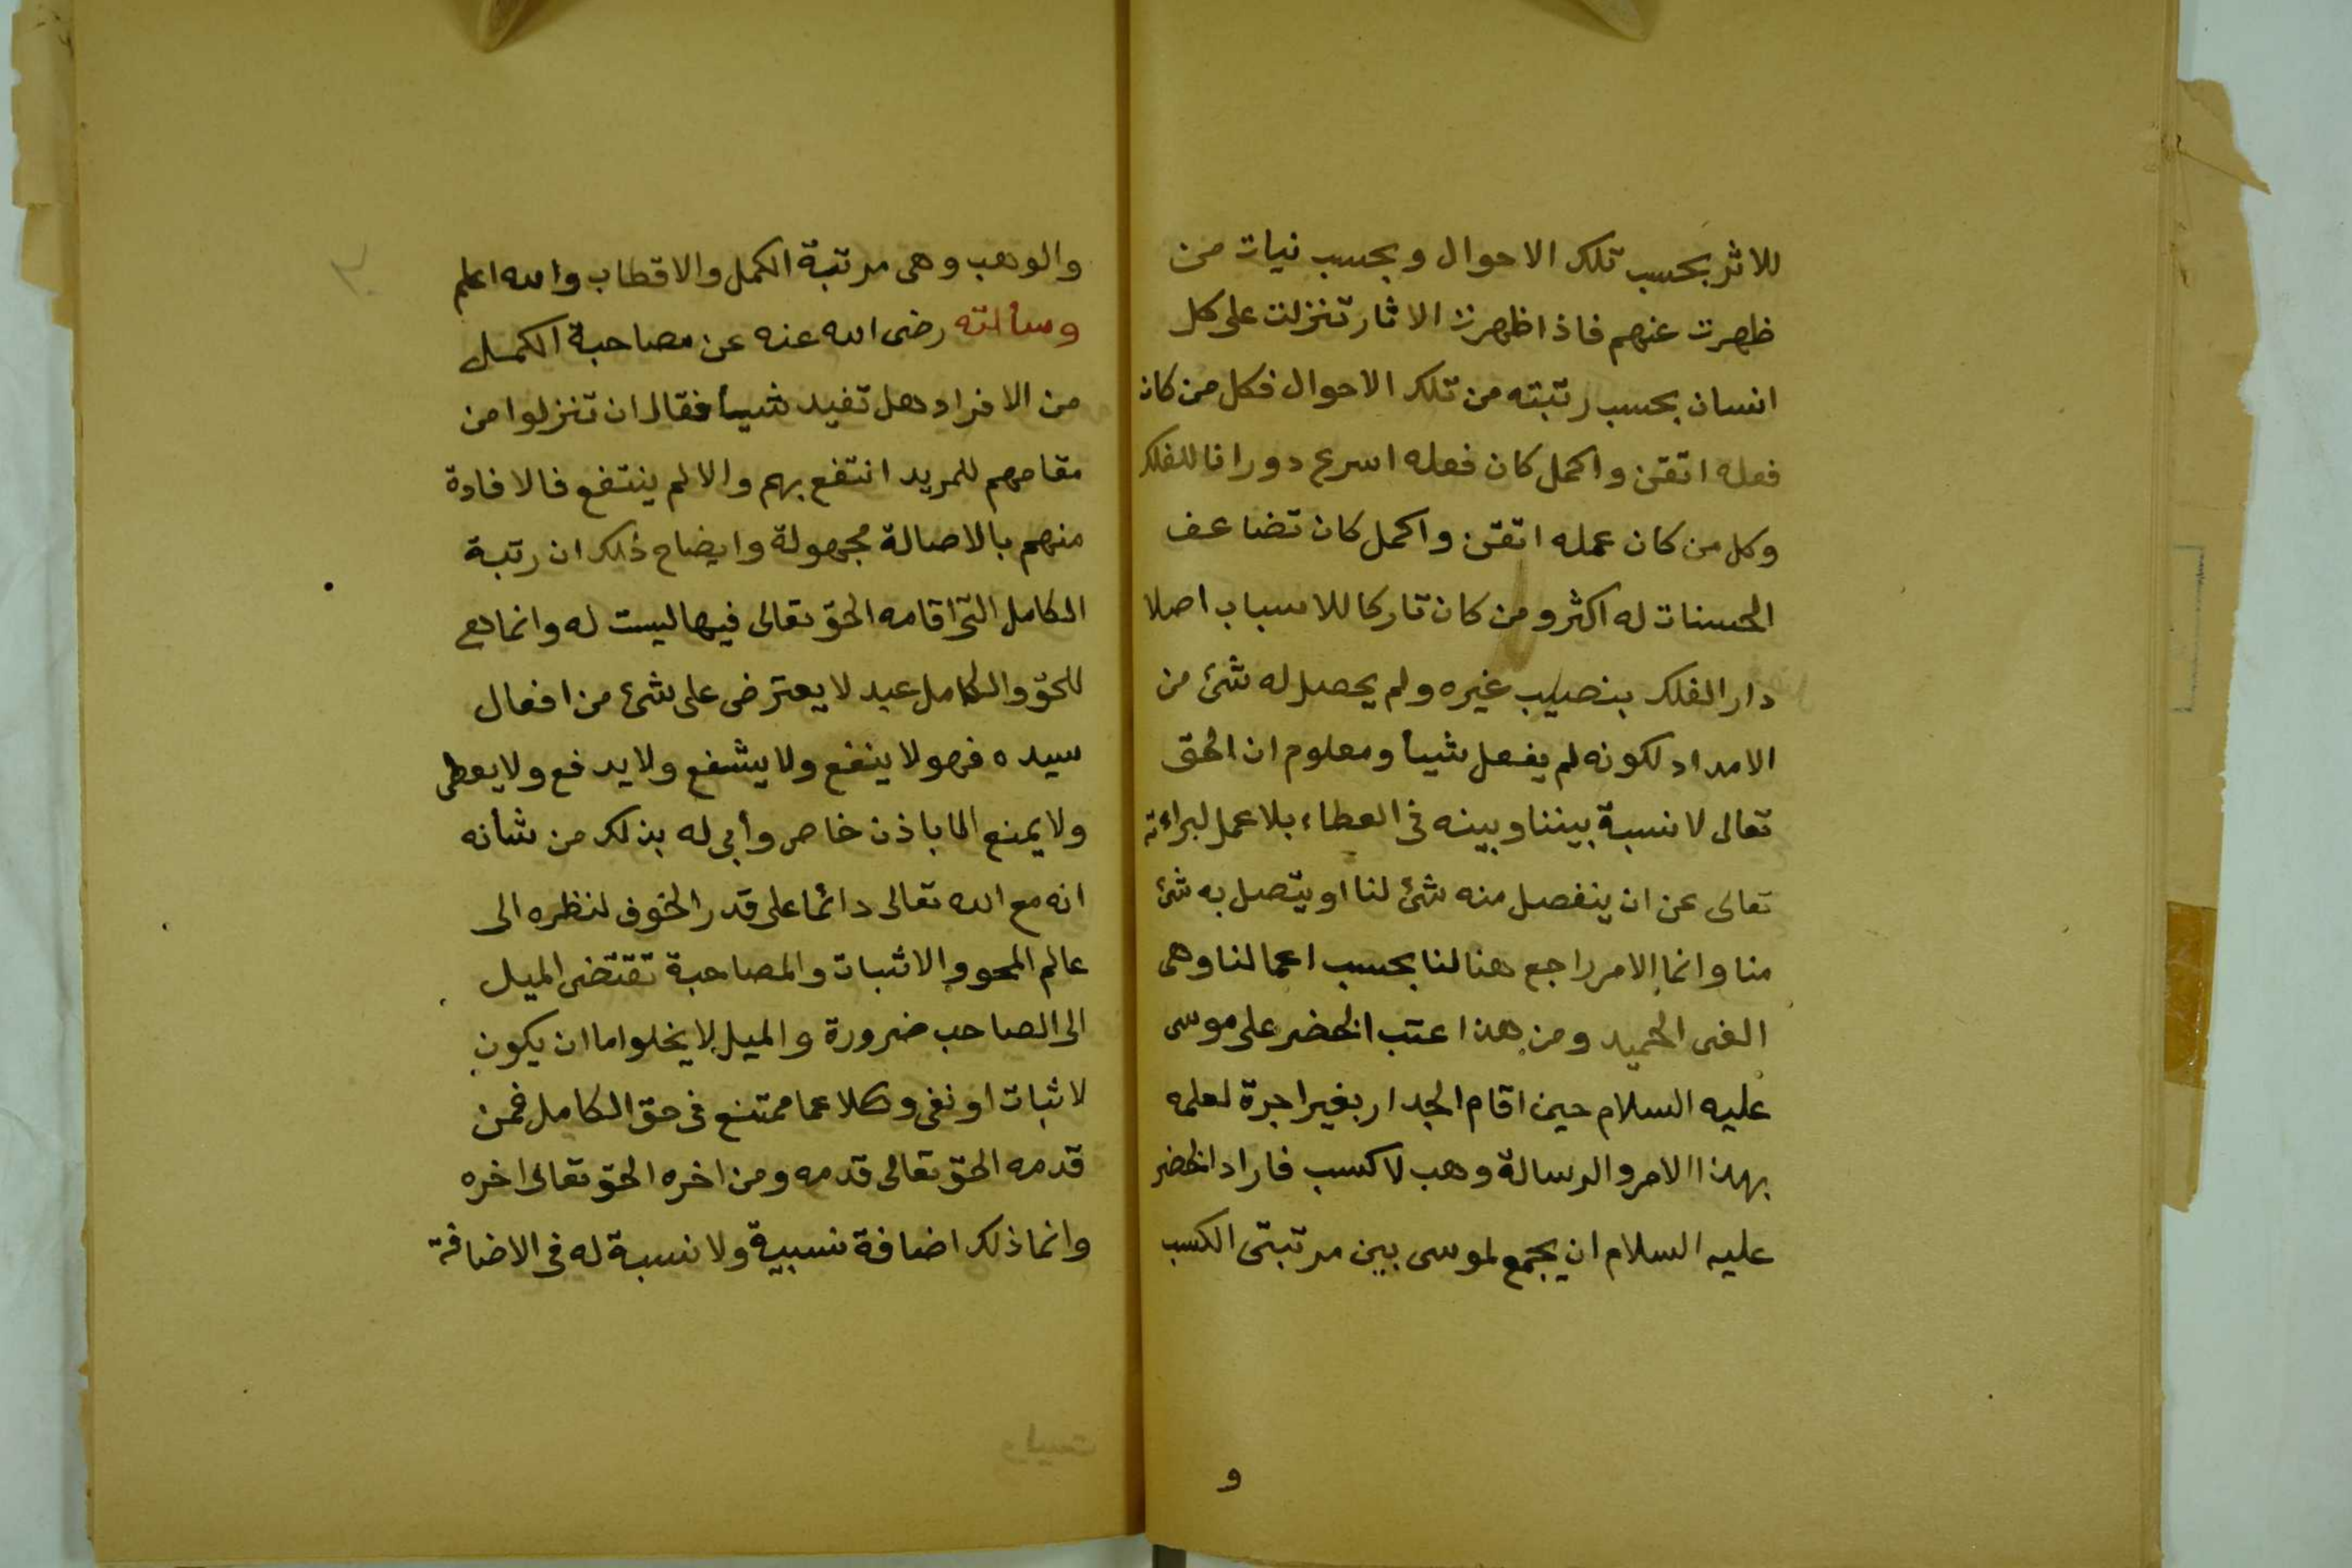 للاثر بحسب تلك الاحوال وبحسب نيات من
ظهرت عنهم فاذا ظهرت الاثار تنزلت على كل
انسان بحسب رتبته من تلك الاحوال فكل من كان
فعله اتقن واكمل كان فعله اسرع دورانا للفلك
وكل من كان عمله اتقن واكمل كان تضاعف
الحسنات له اكثر ومن كان تاركا للاسباب اصلا
دار الفلك بنصيب غيره ولم يحصل له شئ من
الامداد لكونه لم يفعل شيأ ومعلوم ان الحق
تعالى لا نسبة بيننا وبينه في العطاء بلا عمل لبراءته
تعالى عن ان ينفصل منه شئ لنا او يتصل به شئ
منا وانما الامر راجع هنا لنا بحسب اعمالنا وهى
الغنى الحميد ومن هذا عتب الخضر على موسى
عليه السلام حين اقام الجدار بغير اجرة لعلمه
بهذا الامر والرسالة وهب لا كسب فاراد الخضر
عليه السلام ان يجمع لموسى بين مرتبتى الكسب
و
والوهب وهى مرتبة الكمل والاقطاب والله اعلم
وسألته رضى الله عنه عن مصاحبة الكمل
من الافراد هل تفيد شيأ فقال ان تنزلوا من
مقامهم للمريد انتفع بهم والا لم ينتفع فالافادة
منهم بالاصالة مجهولة وايضاح ذلك ان رتبة
الكامل التى اقامه الحق تعالى فيها ليست له وانما هى
للحق والكامل عبد لا يعترض على شئ من افعال
سيده فهو لا ينفع ولا يشفع ولا يدفع ولا يعطى
ولا يمنع الا باذن خاص وأنى له بذلك من شأنه
انه مع الله تعالى دائما على قدر الخوف لنظره الى
عالم المحو والاثبات والمصاحبة تقتضى الميل
الى الصاحب ضرورة والميل لا يخلوا اما ان يكون
لاثبات او نفى وكلاهما ممتنع فى حق الكامل فمن
قدمه الحق تعالى قدمه ومن اخره الحق تعالى اخره
وانما ذلك اضافة نسبية ولا نسبة له فى الاضافة